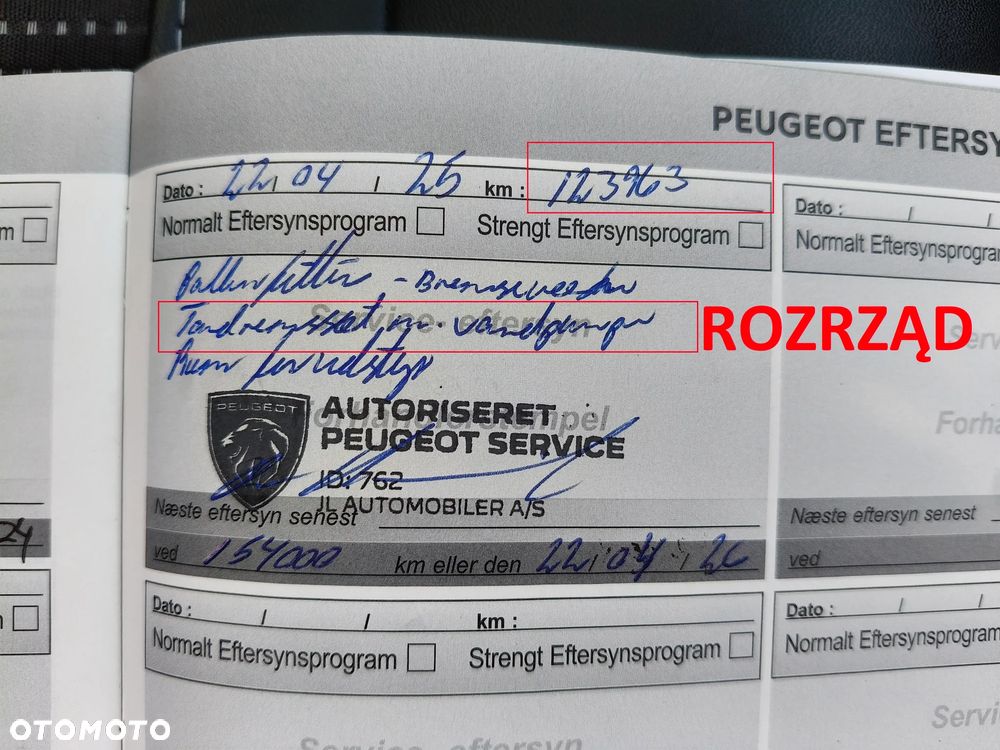 PEUGEOT EFTERSY
Dato : 22 / 04 / 25 km : 123963
Normalt Eftersynsprogram Strengt Eftersynsprogram
Pollenfilter - Bremsevæske
Tandremssæt m. vandpumpe
ROZRZĄD
Service - eftersyn
Forhandlerstempel
PEUGEOT
AUTORISERET
PEUGEOT SERVICE
ID: 762
JL AUTOMOBILER A/S
Næste eftersyn senest
ved 154000 km eller den 22 / 04 / 26
Dato : / / km :
Normalt Eftersynsprogram Strengt Eftersynsprogram
Service - eftersyn
Dato : / /
Normalt Eftersynsprogram
Forha
Næste eftersyn senest
ved
Dato : / /
Normalt Eftersynsprogram
Servic
OTOMOTO